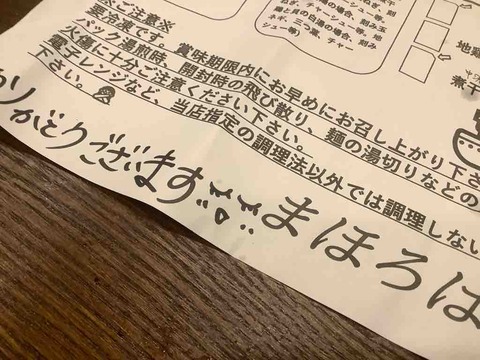 ※ご注意※
要冷凍です。賞味期限内にお早めにお召し上がり下さ
パック湯煎時、開封時の飛び散り、麺の湯切りなどの
火傷に十分ご注意ください下さい。
電子レンジなど、当店指定の調理法以外では調理しない
下さい。
ありがとうございます
まほろば
の場合、刻み玉
チャーシュー等。
の白湯の場合、刻み
ネギ、三つ葉、チャー
シュー等)
地鶏
煮干